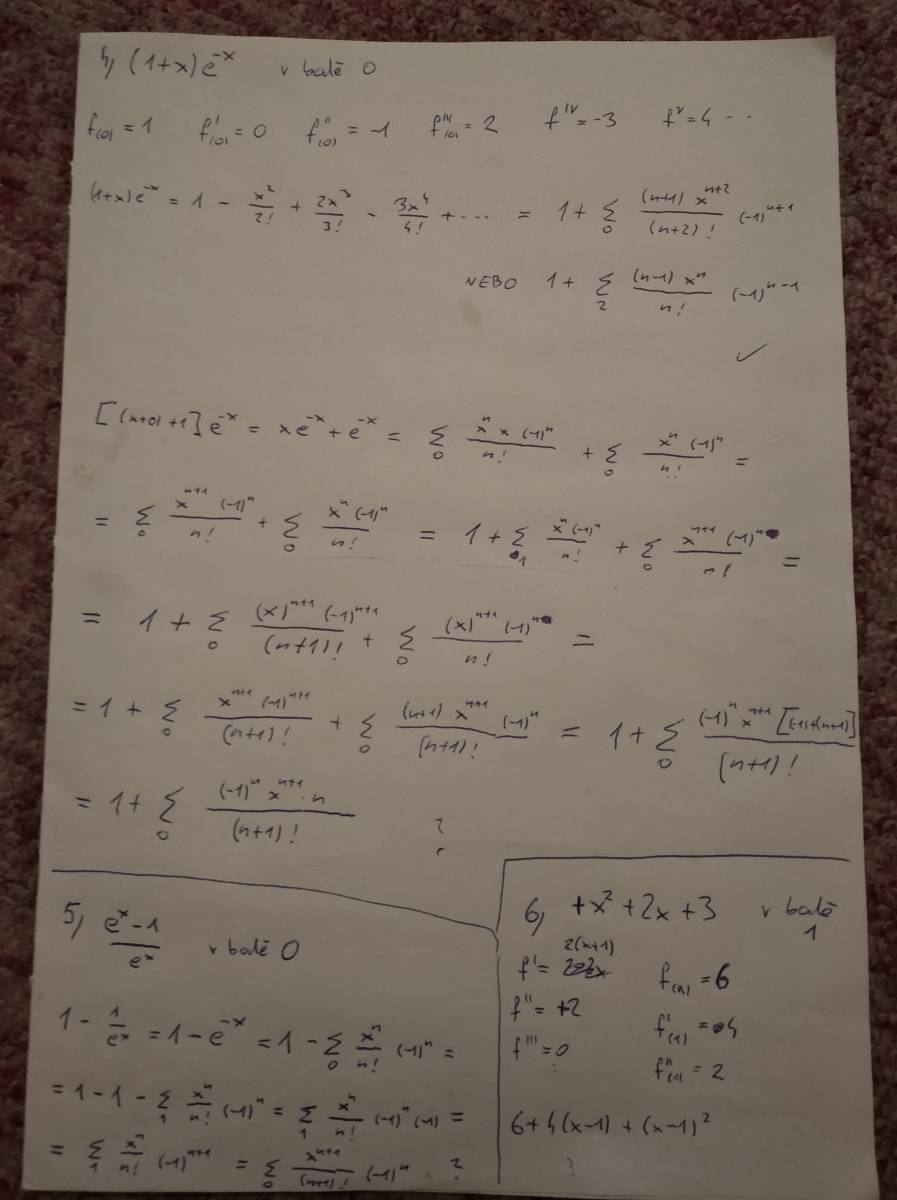 4, (1+x)e^{-x} v bodě 0
f_{(0)} = 1 f'_{(0)} = 0 f''_{(0)} = -1 f'''_{(0)} = 2 f^{IV} = -3 f^{V} = 4 ...
(1+x)e^{-x} = 1 - x²/2! + 2x³/3! - 3x⁴/4! + ... = 1 + Σ_0 (n+1) x^{n+2}/(n+2)! (-1)^{n+1}
NEBO 1 + Σ_2 (n-1) x^n/n! (-1)^{n-1}
✓
[(x+0)+1] e^{-x} = xe^{-x} + e^{-x} = Σ_0 x^n x (-1)^n/n! + Σ_0 x^n (-1)^n/n! =
= Σ_0 x^{n+1} (-1)^n/n! + Σ_0 x^n (-1)^n/n! = 1 + Σ_1 x^n (-1)^n/n! + Σ_0 x^{n+1} (-1)^n/n! =
= 1 + Σ_0 (x)^{n+1} (-1)^{n+1}/(n+1)! + Σ_0 (x)^{n+1} (-1)^n/n! =
= 1 + Σ_0 x^{n+1} (-1)^{n+1}/(n+1)! + Σ_0 (n+1) x^{n+1}/(n+1)! (-1)^n = 1 + Σ_0 (-1)^n x^{n+1} [(-1)+(n+1)]/(n+1)!
= 1 + Σ_0 (-1)^n x^{n+1} · n/(n+1)! ?
5, e^x - 1/e^x v bodě 0
1 - 1/e^x = 1 - e^{-x} = 1 - Σ_0 x^n/n! (-1)^n =
= 1 - 1 - Σ_1 x^n/n! (-1)^n = Σ_1 x^n/n! (-1)^n (-1) =
= Σ_1 x^n/n! (-1)^{n+1} = Σ_0 x^{n+1}/(n+1)! (-1)^n . ?
6, +x² + 2x + 3 v bodě 1
f' = 2(x+1) f_{(1)} = 6
f'' = +2 f'_{(1)} = 4
f''' = 0 f''_{(1)} = 2
6 + 4(x-1) + (x-1)²
?